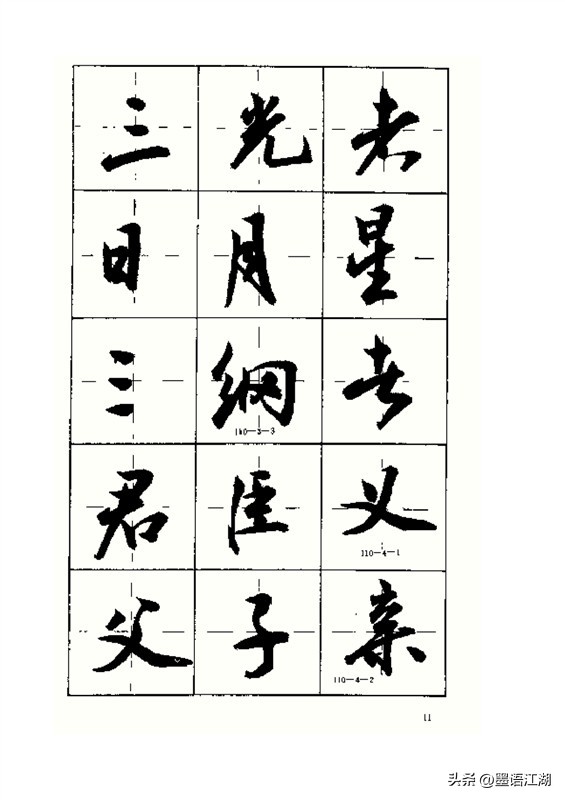 三光者
日月星
三纲者
110—3—3
君臣义
110—4—1
父子亲
110—4—2
11
头条 @墨语江湖